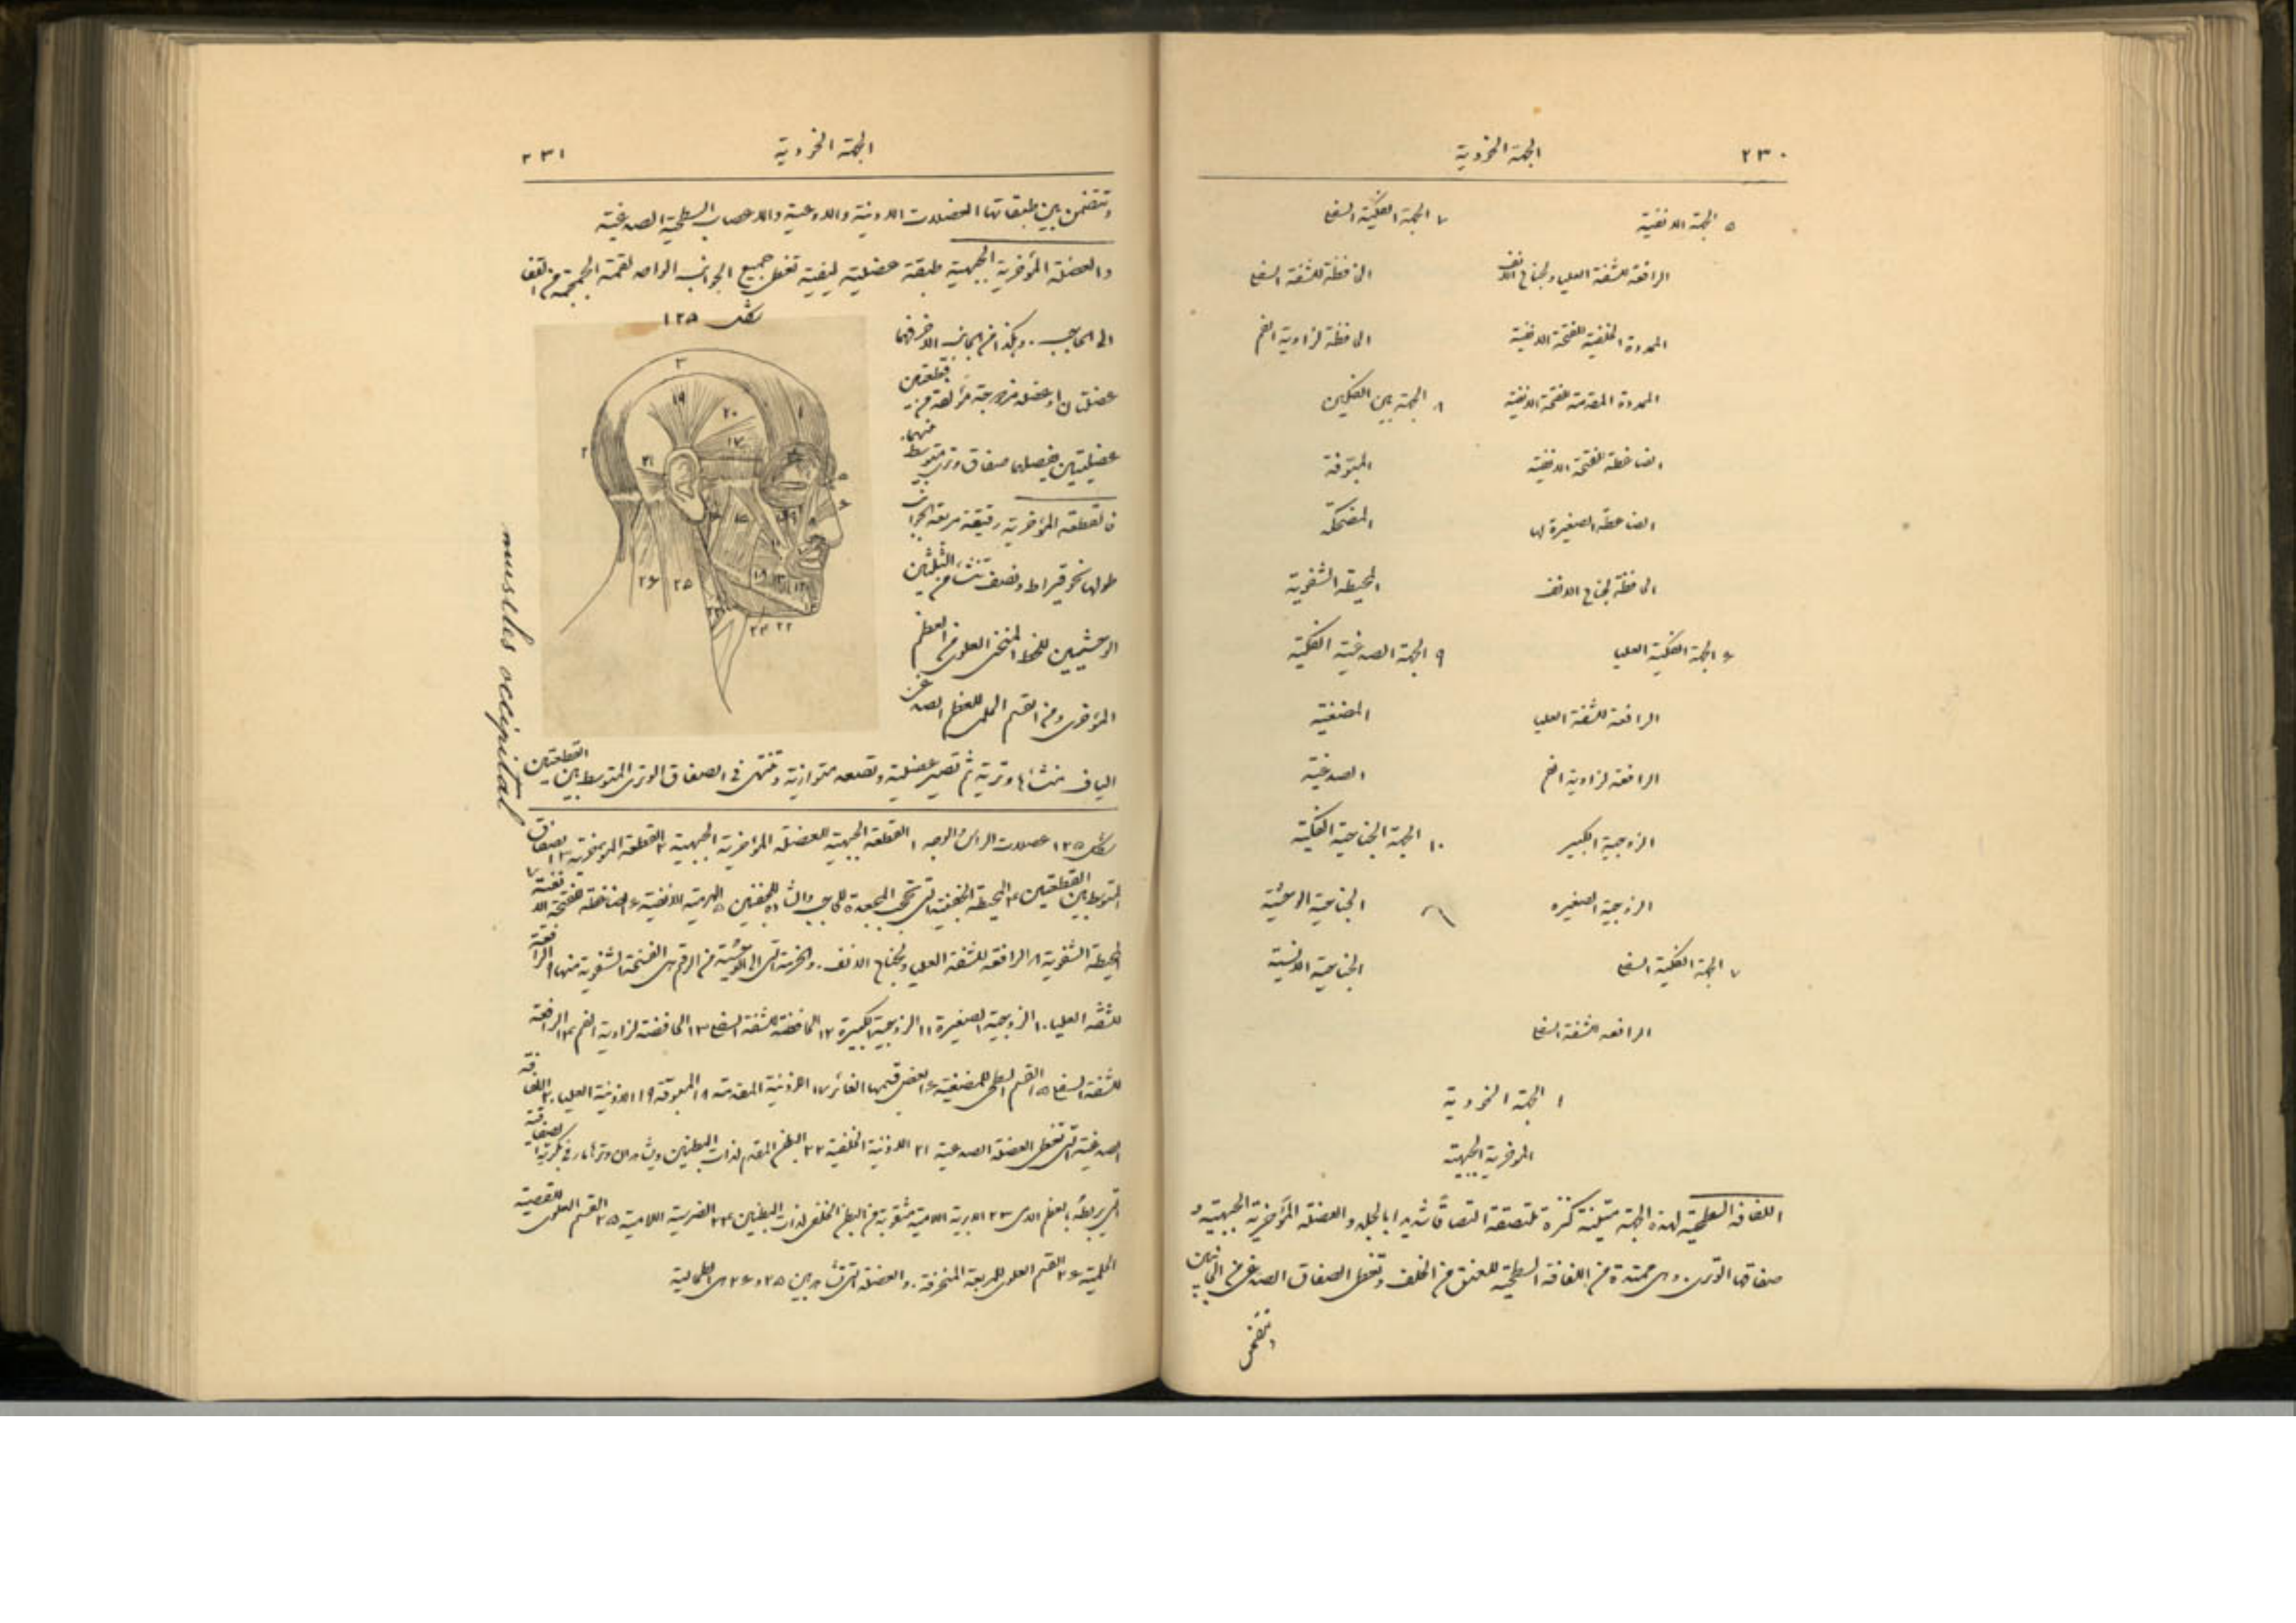 ٢٣٠
الجهة الخوذية
٥ الجهة الانفية
الرافعة للشفة العليا ولجناح الانف
الممددة الخلفية للفتحة الانفية
الممددة المقدمة للفتحة الانفية
الضاغطة للفتحة الانفية
الضاغطة الصغيرة لها
الخافظة لجناح الانف
٦ الجهة الفكية العليا
الرافعة للشفة العليا
الرافعة لزاوية الفم
الزوجية الكبير
الزوجية الصغيره
٧ الجهة الفكية السفلى
الرافعه للشفة السفلى
٧ الجهة الفكية السفلى
الخافظة للشفة السفلى
الخافظة لزاوية الفم
٨ الجهة بين الفكين
المبوقة
المضحكة
المحيطة الشفوية
٩ الجهة الصدغية الفكية
المضغية
الصدغية
١٠ الجهة الجناحية الفكية
الجناحية الوحشية
الجناحية الانسية
١ الجهة الخوذية
المؤخرية الجبهية
اللفافة السطحية لهذه الجهة متينة ملتصقة التصاقًا شديدا بالجلد والعضلة المؤخرية الجبهية و
صفاقها الوترى. وهى ممتدة من اللفافة السطحية للعنق من الخلف وتغطى الصفاق الصدغى من الجانبين
وتتضمن
الجهة الخوذية
٢٣١
وتتضمن بين طبقاتها العضلات الاذنية والاوعية والاعصاب السطحية الصدغية
والعضلة المؤخرية الجبهية طبقة عضلية ليفية تغطى جميع الجوانب الواحد لقمة الجمجمة من القفا
شكل ١٢٥
الى الحاجب. وهكذا من الجانب الاخر فهما
عضلتان او عضلة مزدوجة مؤلفة من قطعتين
عضليتين يفصلهما صفاق وترى متوسط بينهما.
فالقطعة المؤخرية رقيقة مربعة الجوانب
طولها نحو قيراط ونصف تنشأ من الثلثين
الوحشيين للخط المنحنى العلوى من العظم
المؤخرى ومن القسم الحلمى للعظم الصدغى
اليافه منشأها وترية ثم تصير عضلية وتصعد متوازية وتنتهى فى الصفاق الوترى المتوسط بين القطعتين
muscles occipital
٣
١٩
٢٠
١
١٧
٢
٢١
٥
٦
١٥
٨
١٠
٢٦
٢٥
٢٤
٢٣
٢٢
شكل ١٢٥ عضلات الرأس والوجه ١ القطعة الجبهية للعضلة المؤخرية الجبهية ٢ القطعة المؤخرية ٣ الصفاق
المتوسط بين القطعتين ٤ المحيطة الجفنية التى تخفى المجعدة للحاجب والشادة للجفنين ٥ الهرمية الانفية ٦ الضاغطة للفتحة الانفية ٧
المحيطة الشفوية ٨ الرافعة للشفة العليا ولجناح الانف. والحزمة التى الى الوحشية من الرقم هى الفتحة الشفوية منها ٩ الرافعة
للشفة العليا ١٠ الزوجية الصغيرة ١١ الزوجية الكبيرة ١٢ الخافضة للشفة السفلى ١٣ الخافضة لزاوية الفم ١٤ الرافعة
للشفة السفلى ١٥ القسم السطحى للمضغية ١٦ قسمها الغائر ١٧ الاذنية المقدمة ١٨ المبوقة ١٩ الاذنية العليا ٢٠ اللفافة
الصدغية التى تغطى العضلة الصدغية ٢١ الاذنية الخلفية ٢٢ البطن المقدم لذات البطنين ويشاهد ان وترها مار فى بكرته الصفاقية
التى يربطه بالعظم اللامى ٢٣ الابرية اللامية مثقوبة من البطن الخلفى لذات البطنين ٢٤ الضرسية اللامية ٢٥ القسم العلوى للقصية
الحلمية ٢٦ القسم العلوى للمربعة المنحرفة. والعضلة التى تشاهد بين ٢٥ و ٢٦ هى الطحالية